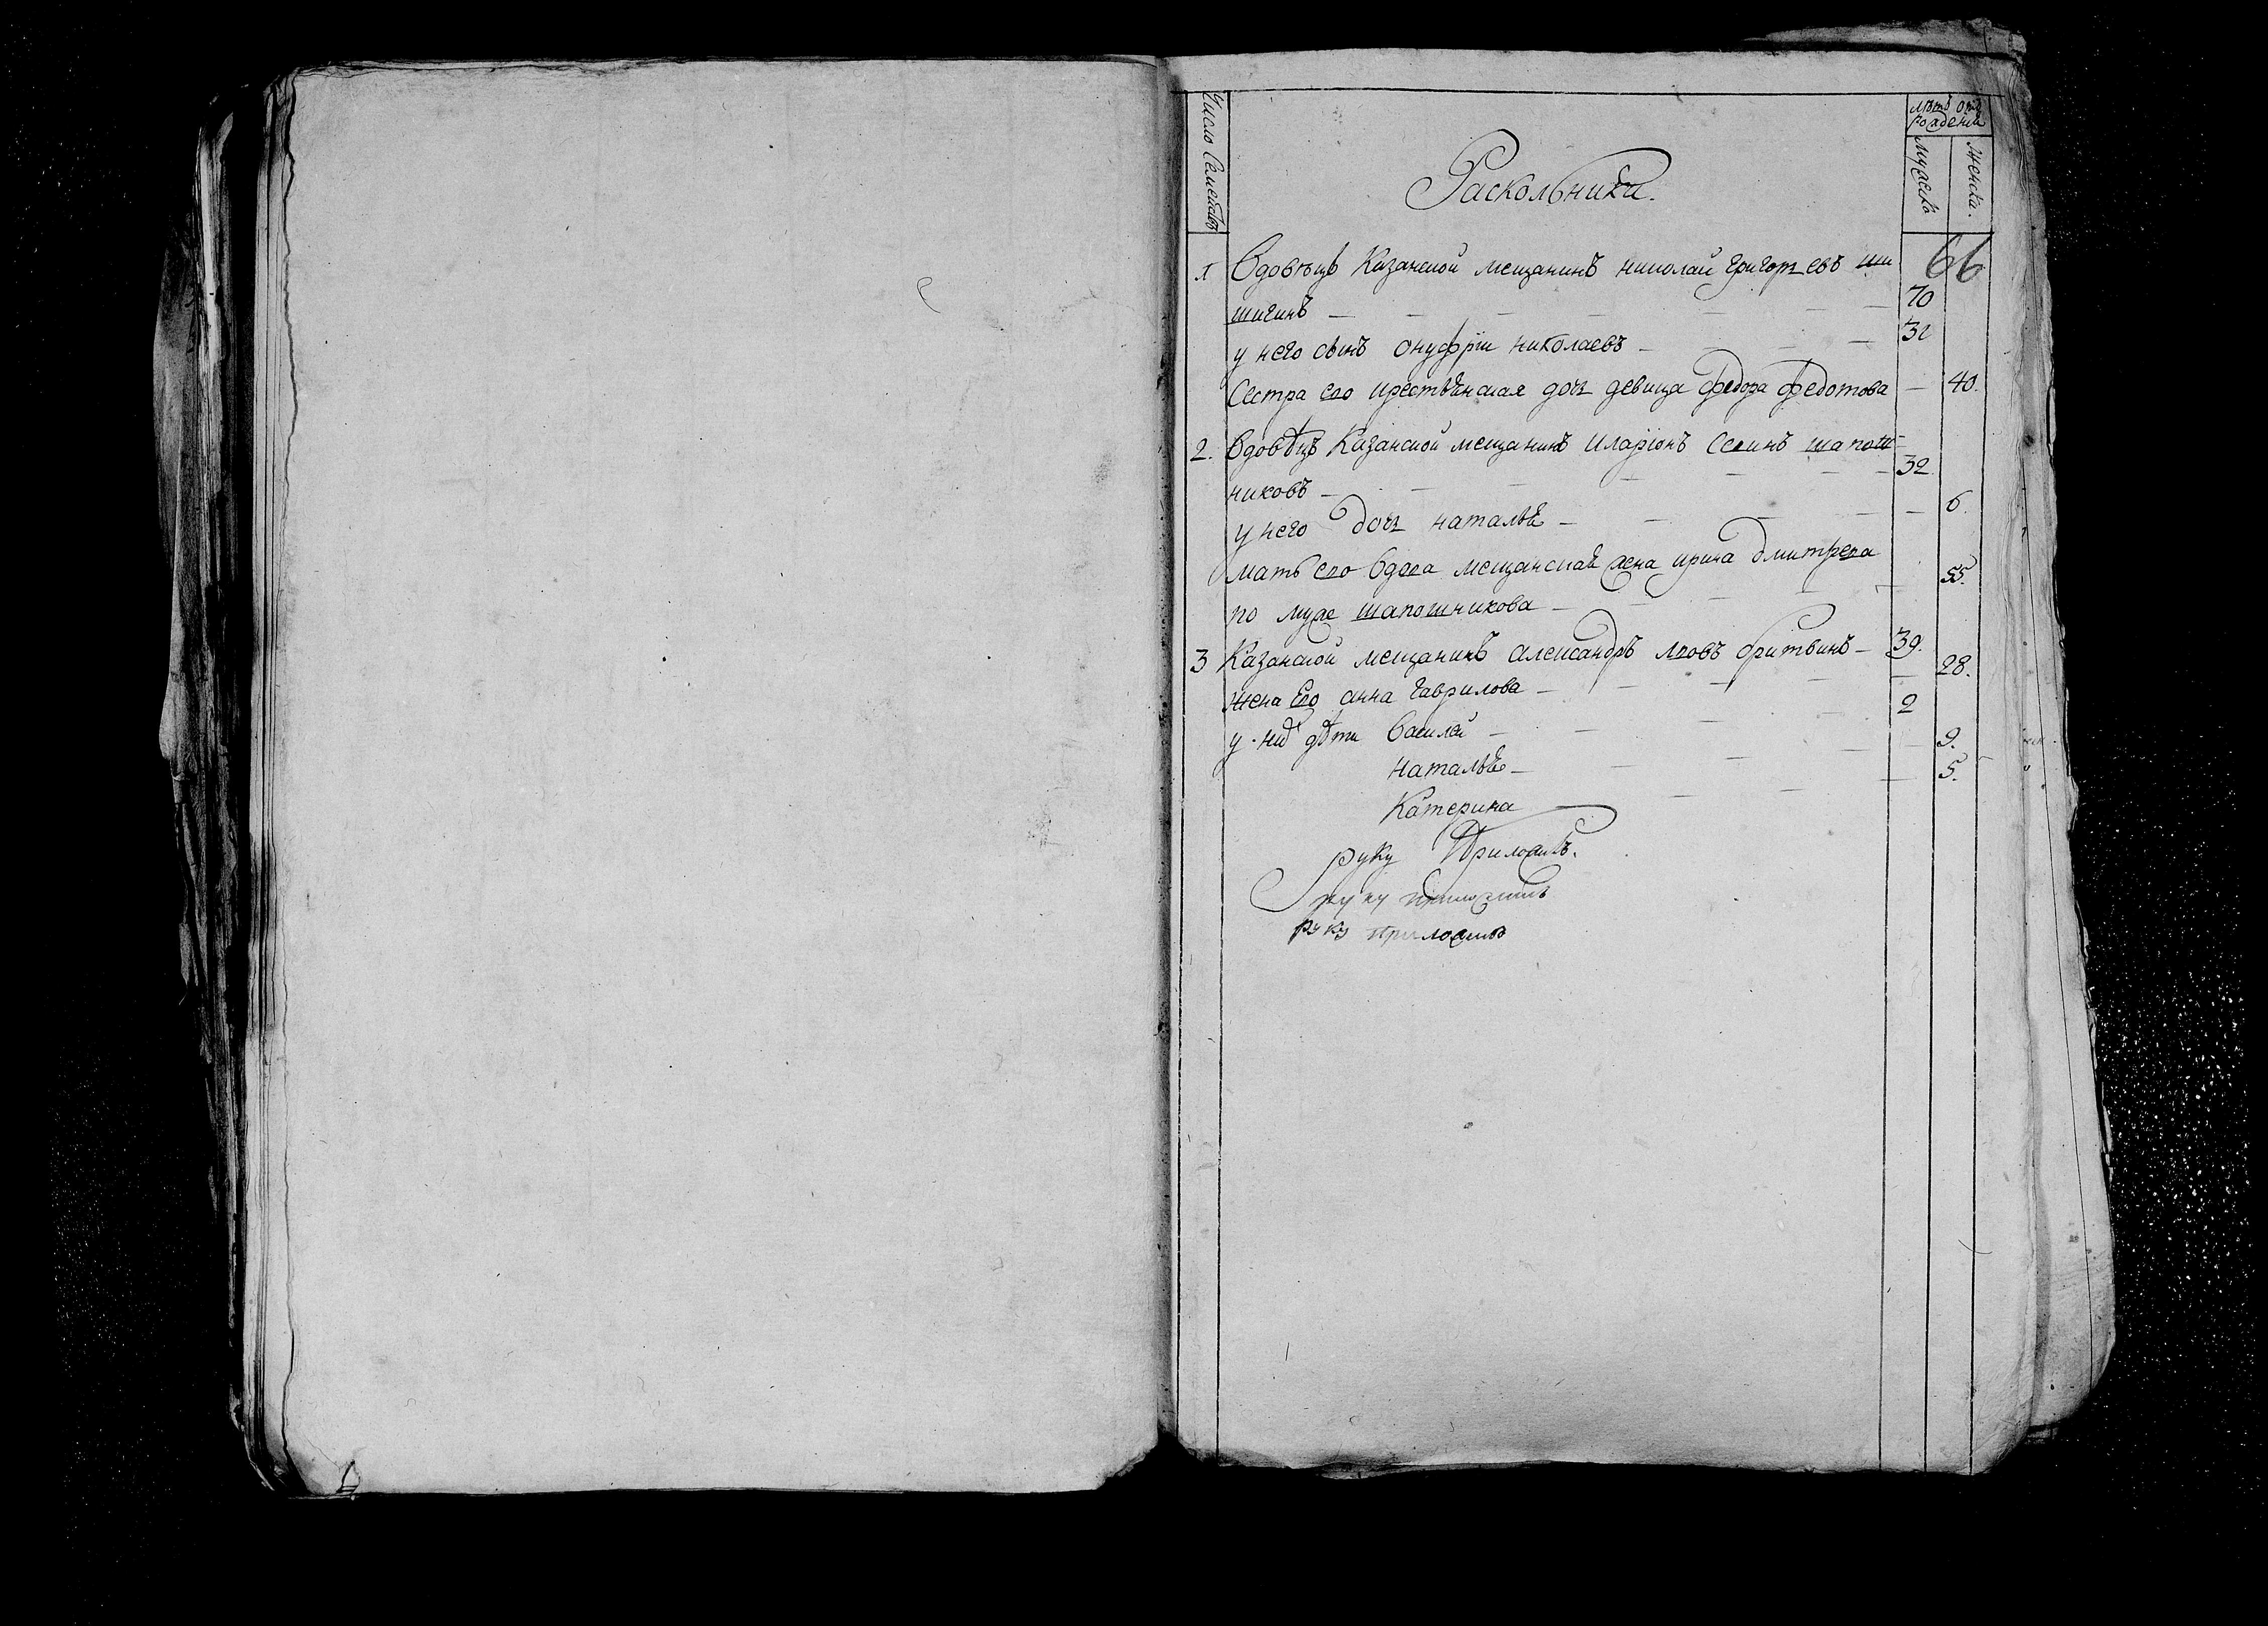 Число Семействъ
лѣтъ отъ
рожденїя
мужескъ
женска.
Раскольники.
66
1 Вдовѣцъ Казанской мещанинъ николай григорьевъ ши
шигинъ — 70
у него сынъ онуфрїи николаевъ — 32
Сестра его крестьянская дочь девица федора федотова — 40.
2. Вдовѣцъ Казанской мещанинъ Иларїонъ Селинъ шапош
никовъ — 32
у него дочь наталья — 6.
мать его вдова мещанская жена ирина дмитрева
по муже шапошникова — 55.
3 Казанской мещанинъ александръ львовъ бритвинъ — 39.
жена Его анна гаврилова — 28.
у нихъ дѣти Василей — 2
наталья — 9.
Катерина — 5.
руку Приложилъ.
руку приложилъ
руку приложилъ